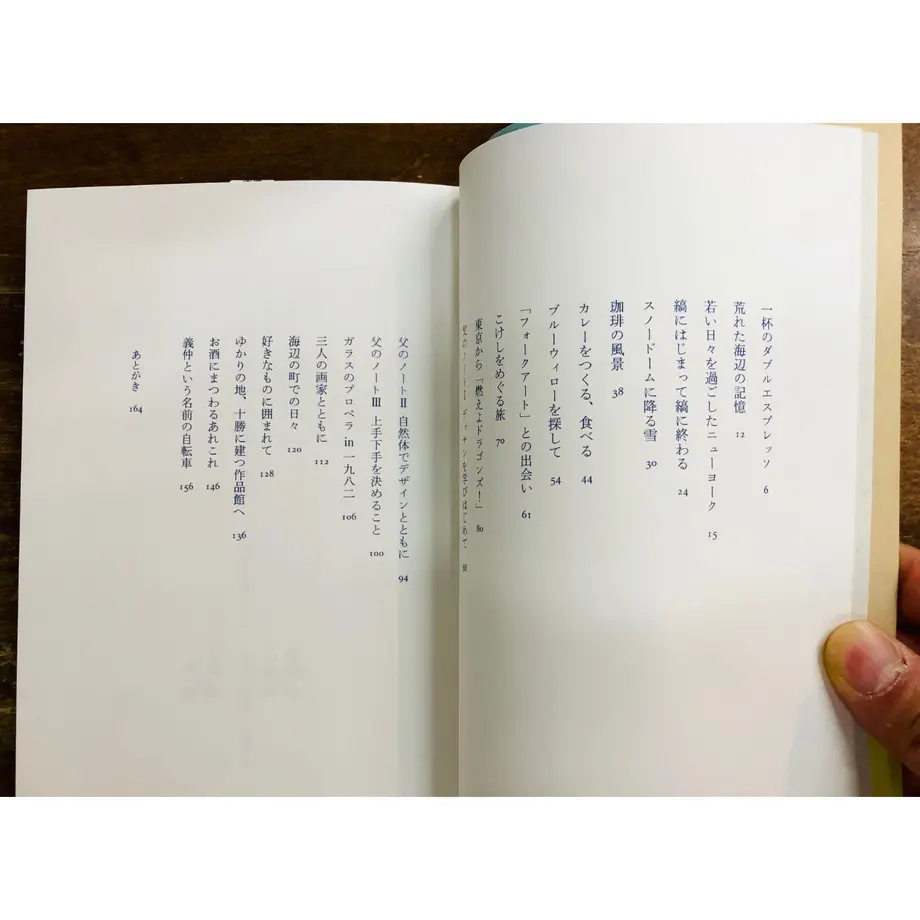 一杯のダブルエスプレッソ 6
荒れた海辺の記憶 12
若い日々を過ごしたニューヨーク 15
縞にはじまって縞に終わる 24
スノードームに降る雪 30
珈琲の風景 38
カレーをつくる、食べる 44
ブルーウィローを探して 54
「フォークアート」との出会い 61
こけしをめぐる旅 70
東京から「燃えよドラゴンズ!」 80
父のノートⅠ デッサンを学びはじめて 88
父のノートⅡ 自然体でデザインとともに 94
父のノートⅢ 上手下手を決めること 100
ガラスのプロペラ in 一九八二 106
三人の画家とともに 112
海辺の町での日々 120
好きなものに囲まれて 128
ゆかりの地、十勝に建つ作品館へ 136
お酒にまつわるあれこれ 146
義仲という名前の自転車 156
あとがき 164